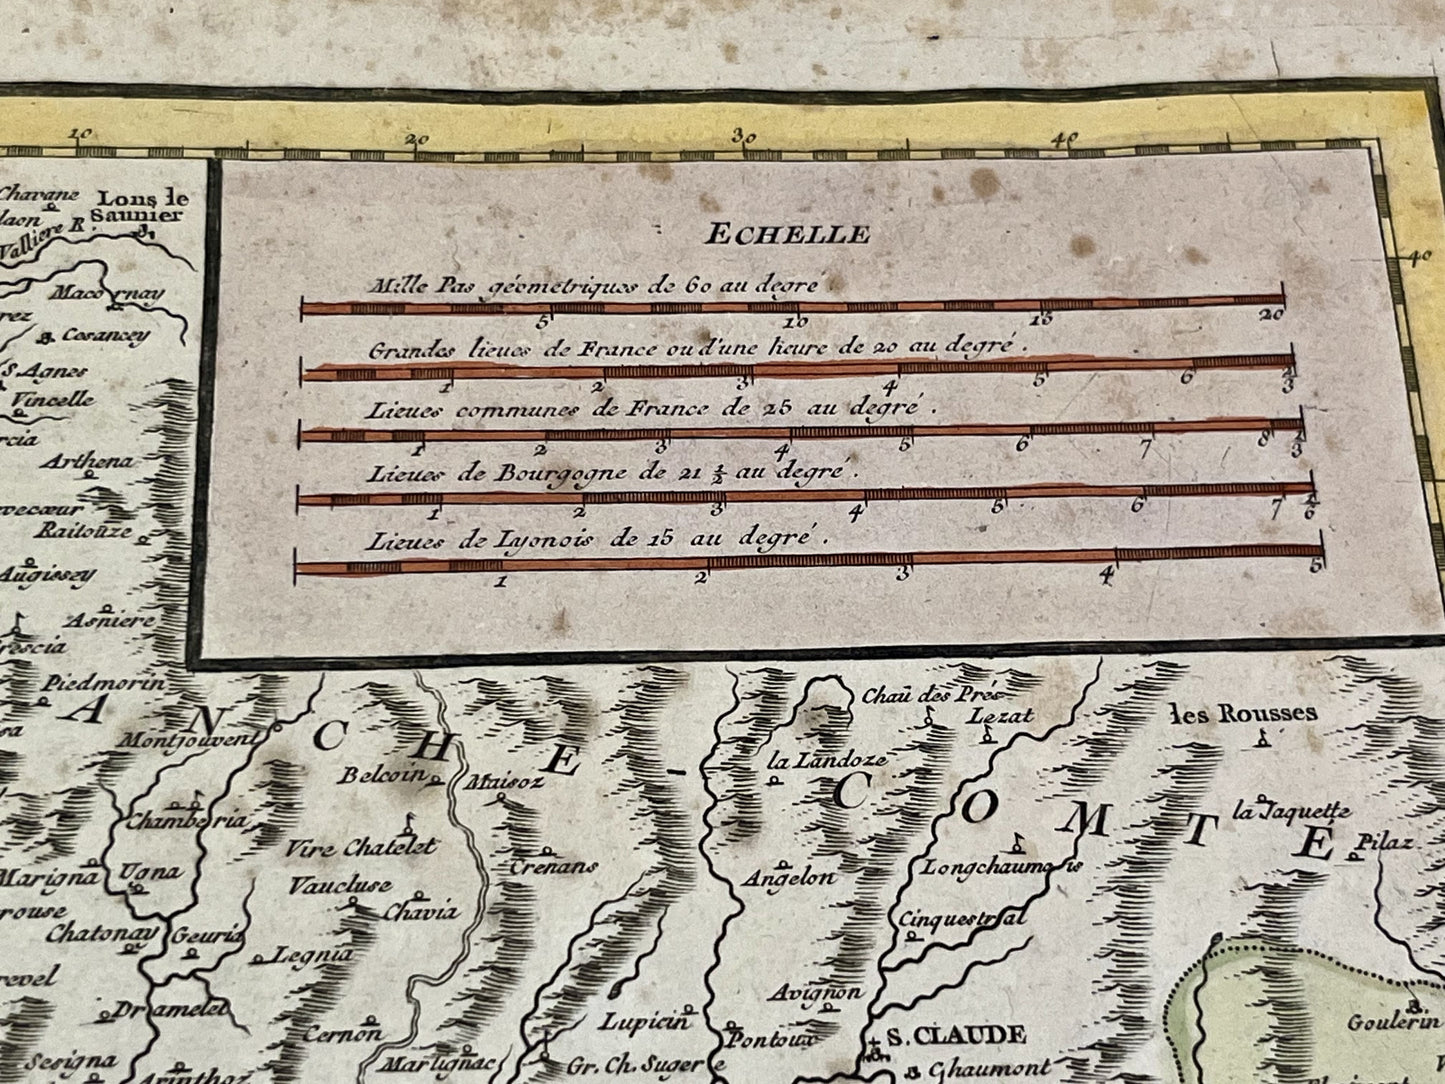 10 20 30 40
40
ECHELLE
Mille Pas géometriques de 60 au degré
5 10 15 20
Grandes lieues de France ou d'une heure de 20 au degré.
1 2 3 4 5 6 2/3
Lieues communes de France de 25 au degré.
1 2 3 4 5 6 7 8 1/3
Lieues de Bourgogne de 21 1/2 au degré.
1 2 3 4 5 6 7 1/6
Lieues de Lyonois de 15 au degré.
1 2 3 4 5
Chavane
Lons le
Saunier
Valliere R.
Macornay
Cosancey
S. Agnes
Vincelle
Arthena
Raitouze
Augissey
Asniere
Piedmorin
ANCHE-COMTE
Montjouvent
Belcoin
Maisoz
Chau des Prés
Lezat
les Rousses
la Landoze
la Jaquette
Pilaz
Chamberia
Vire Chatelet
Crenans
Angelon
Longchaumois
Marigna
Ugna
Vaucluse
Chavia
Cinquestral
Chatonay
Geuria
Legnia
Dramelet
Cernon
Lupicin
Avignon
Pontoux
S. CLAUDE
Goulerin
Sesigna
Arinthoz
Martignac
Gr. Ch. Sugerie
Chaumont